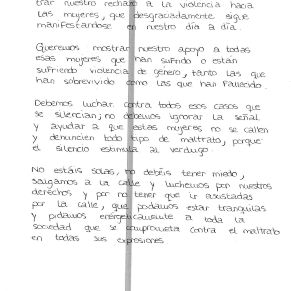 trar nuestro rechazo a la violencia hacia
las mujeres, que desgraciadamente sigue
manifestándose en nuestro día a día.
Queremos mostrar nuestro apoyo a todas
esas mujeres que han sufrido o están
sufriendo violencia de género, tanto las que
han sobrevivido como las que han fallecido.
Debemos luchar contra todos esos casos que
se silencian; no debemos ignorar la señal
y ayudar a que estas mujeres no se callen
y denuncien todo tipo de maltrato, porque
el silencio estimula al verdugo
No estáis solas, no debéis tener miedo,
salgamos a la calle y luchemos por nuestros
derechos y por no tener que ir asustadas
por la calle, que podamos estar tranquilas
y pidamos enérgicamente a toda la
sociedad que se comprometa contra el maltrato
en todas sus expresiones